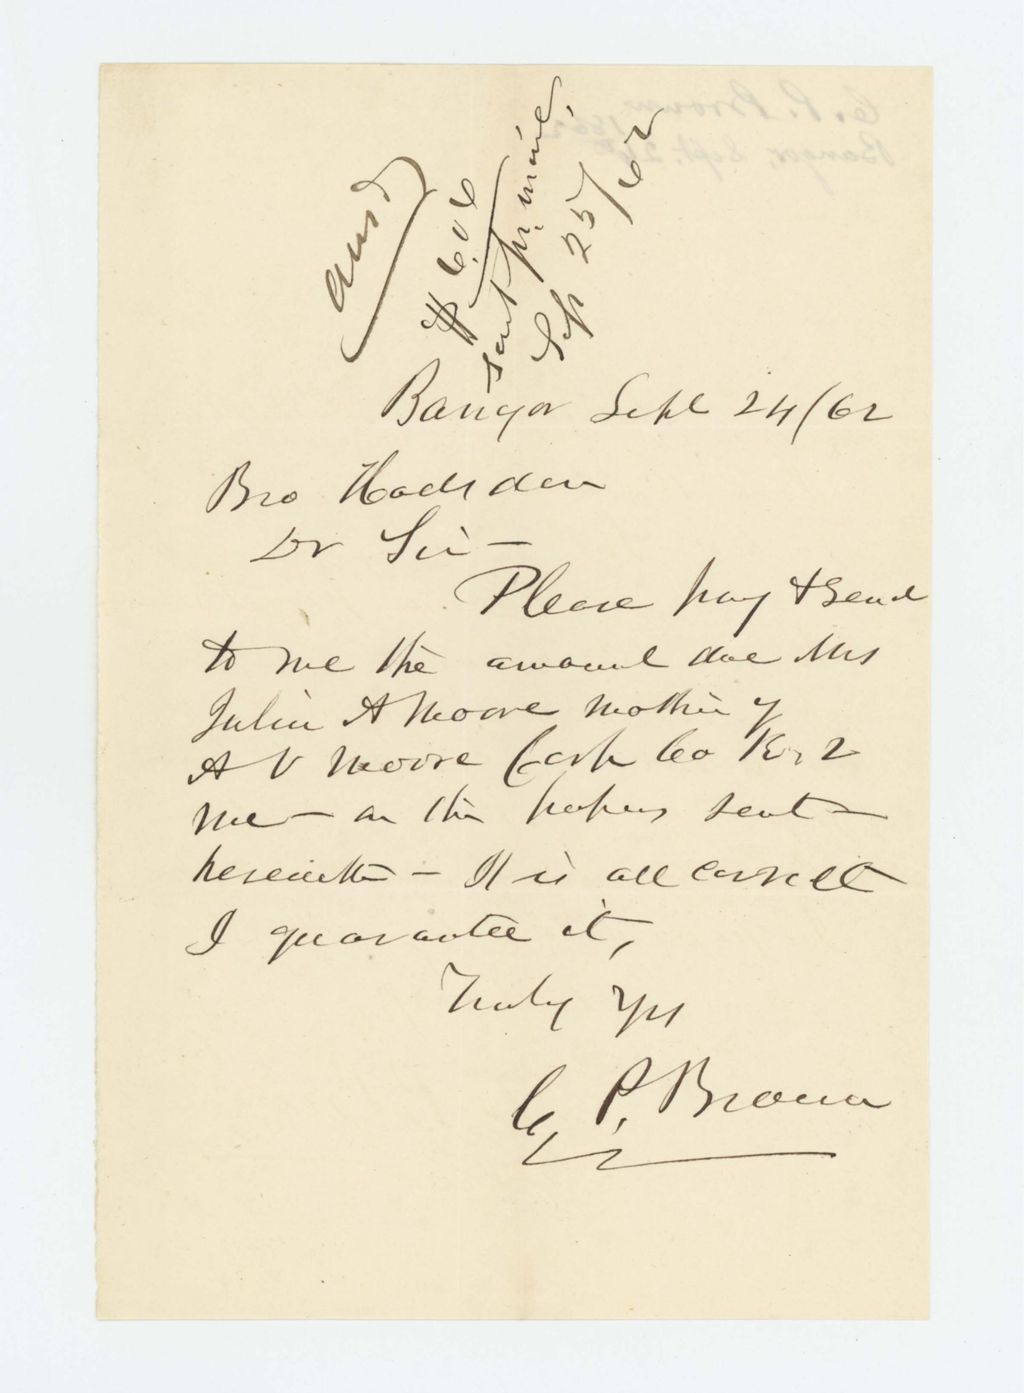 Ansd
$6.06
sent pr. mail,
Sep 25/62
Bangor Sept 24/62
Bro Hodsdon
Dr Sir —
Please pay & send
to me the amount due Mrs
Julia A Moore mother of
A V Moore Capt Co K, 2
Me — on the papers sent —
herewith — It is all correct
I guarantee it,
Truly Yrs
C. P. Brown
C. P. Brown
Bangor, Sept. 24th 1862